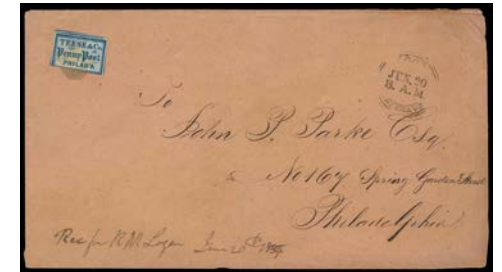 TEESE & Co.
Penny Post
PHILAD'A
JUN. 20
8 A.M.
To
John P. Parke Esq.
No 167 Spring Garden Street
Philadelphia
Rec for R M Logan June 20th